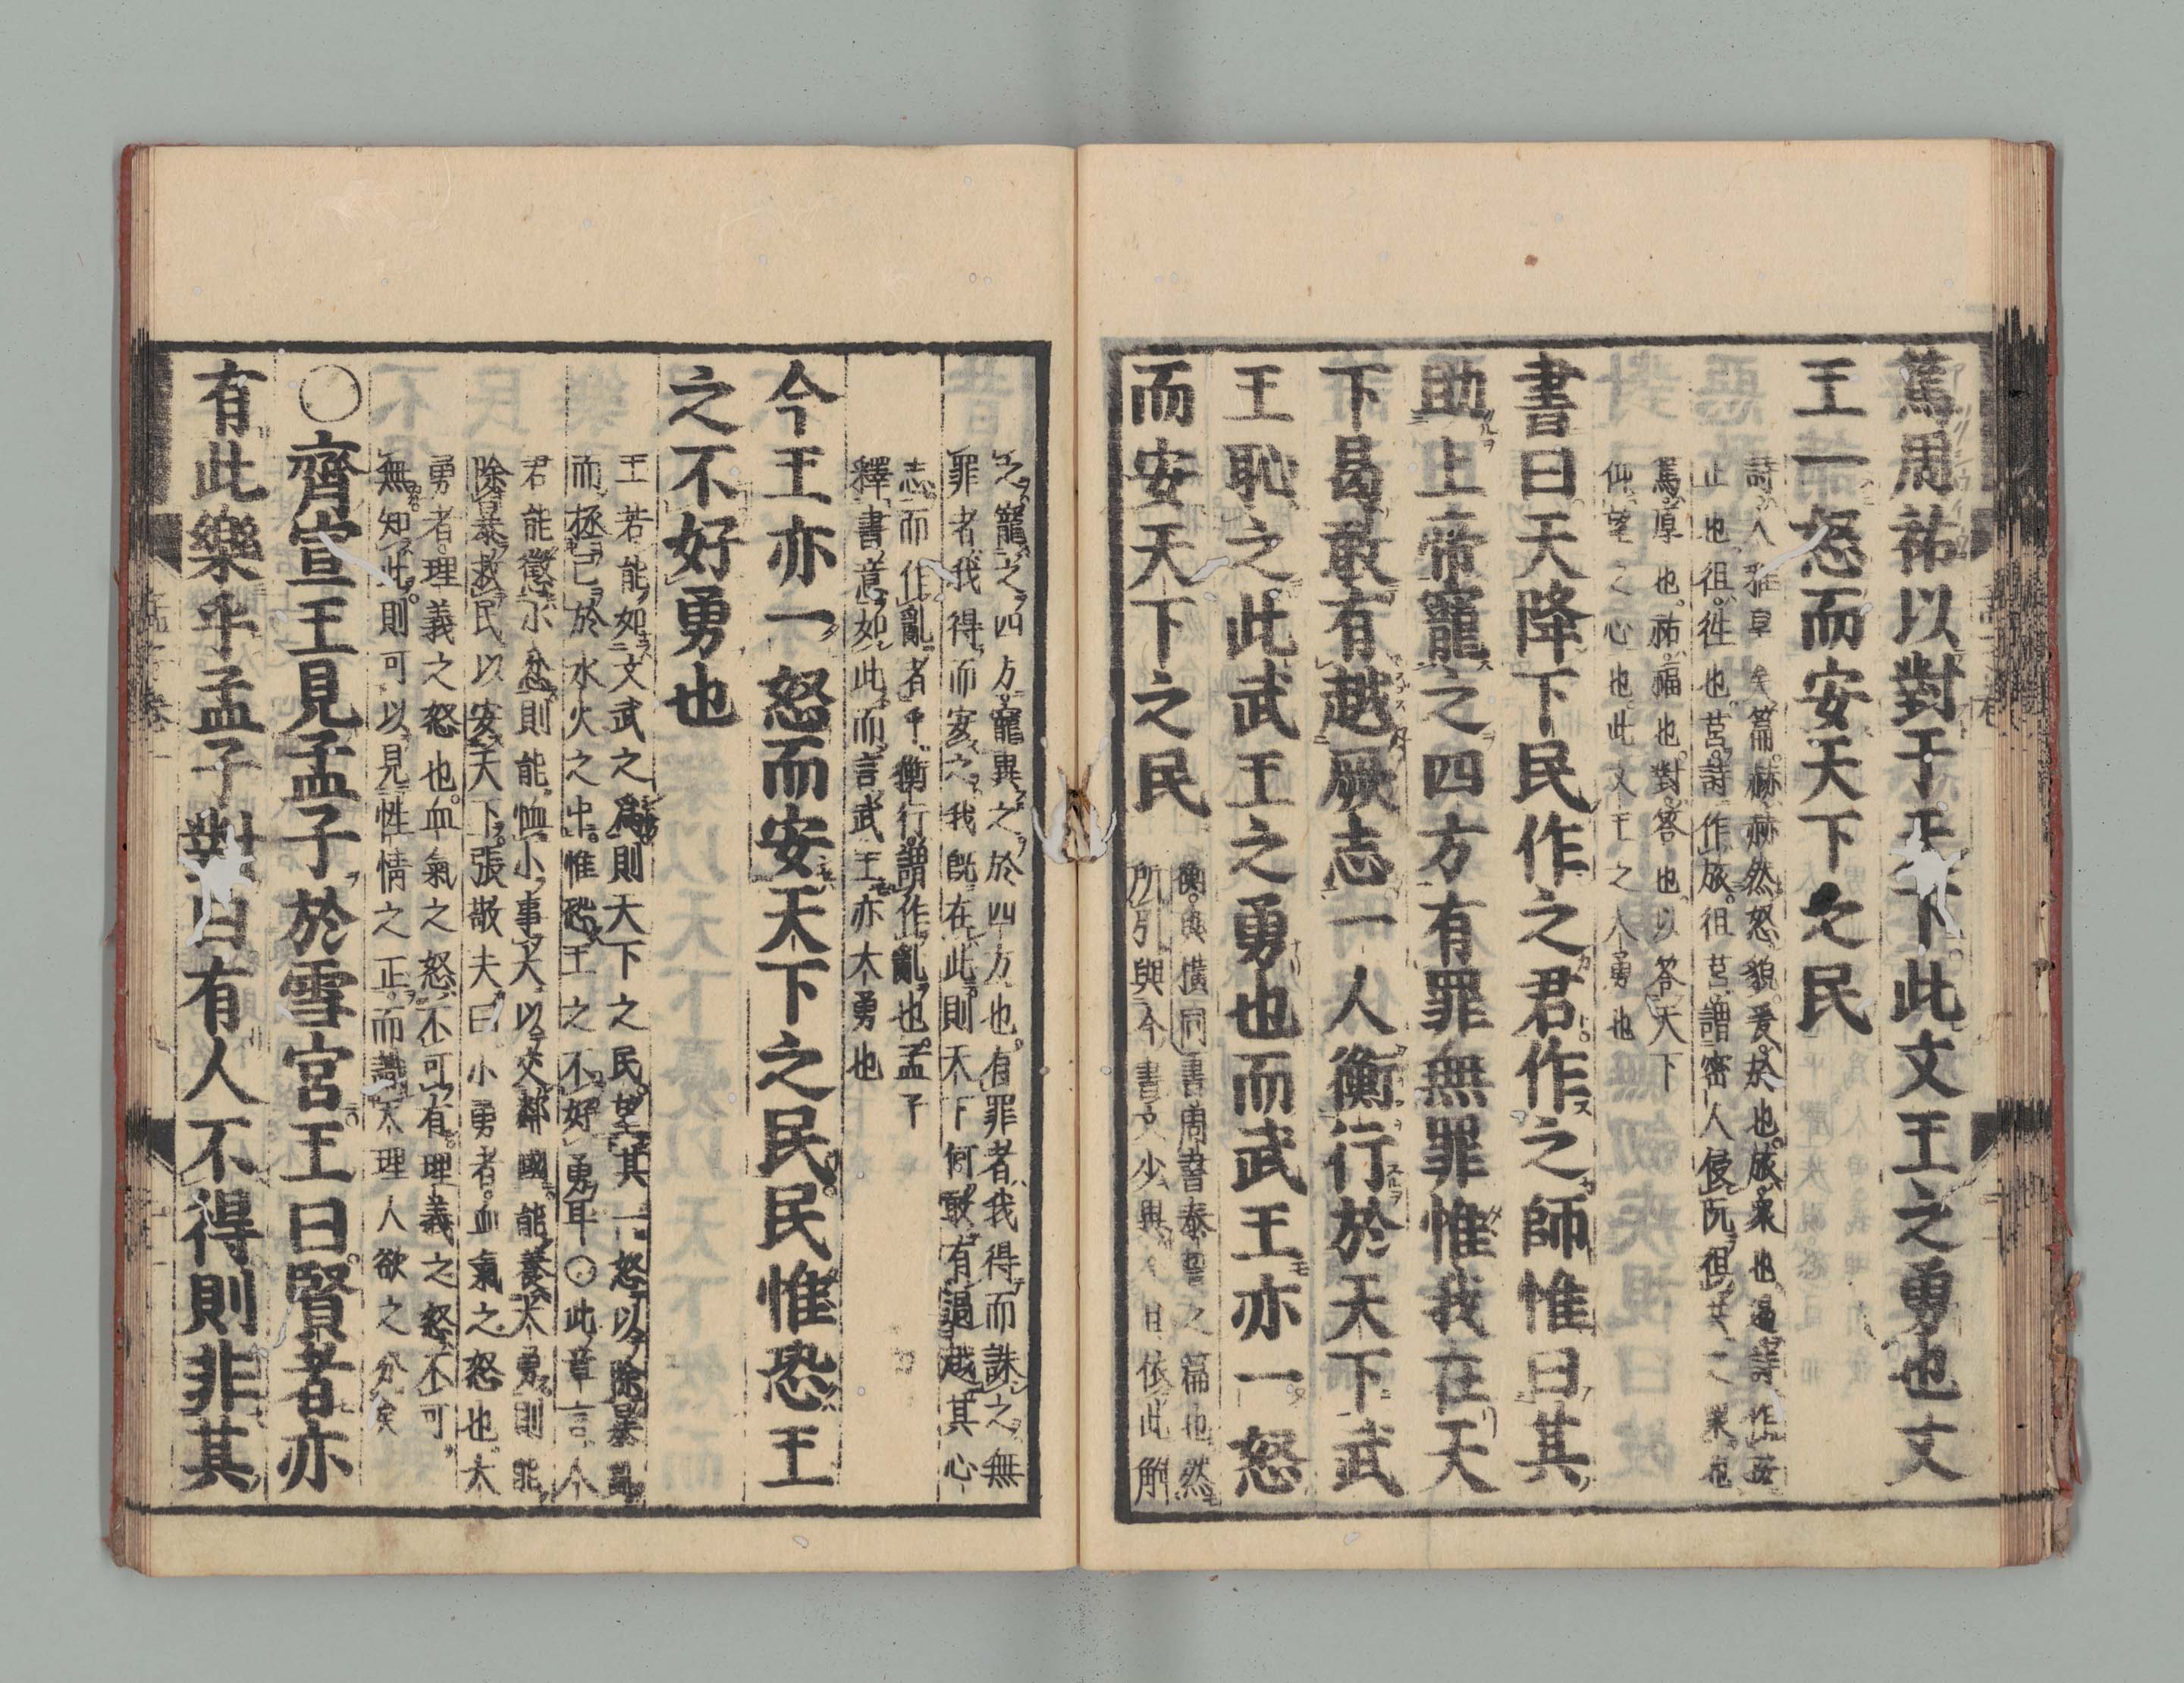 篤周祜以對于天下此文王之勇也文
王一怒而安天下之民
詩大雅皇矣篇赫赫然怒貌爰於也旅衆也遏詩作按
止也徂往也莒詩作旅徂莒謂密人侵阮徂共之衆也
篤厚也祜福也對答也以答天下
仰望之心也此文王之大勇也
書曰天降下民作之君作之師惟曰其
助上帝寵之四方有罪無罪惟我在天
下曷敢有越厥志一人衡行於天下武
王恥之此武王之勇也而武王亦一怒
而安天下之民
衡與橫同書周書泰誓之篇也然
所引與今書文少異今且依此解
之寵之四方寵異之於四方也有罪者我得而誅之無
罪者我得而安之我旣在此則天下何敢有過越其心
志而作亂者乎衡行謂作亂也孟子
釋書意如此而言武王亦大勇也
今王亦一怒而安天下之民民惟恐王
之不好勇也
王若能如文武之爲則天下之民望其一怒以除暴亂
而拯己於水火之中惟恐王之不好勇耳○此章言人
君能懲小忿則能恤小事大以交鄰國能養大勇則能
除暴救民以安天下張敬夫曰小勇者血氣之怒也大
勇者理義之怒也血氣之怒不可有理義之怒不可
無知此則可以見性情之正而識天理人欲之分矣
○齊宣王見孟子於雪宮王曰賢者亦
有此樂乎孟子對曰有人不得則非其